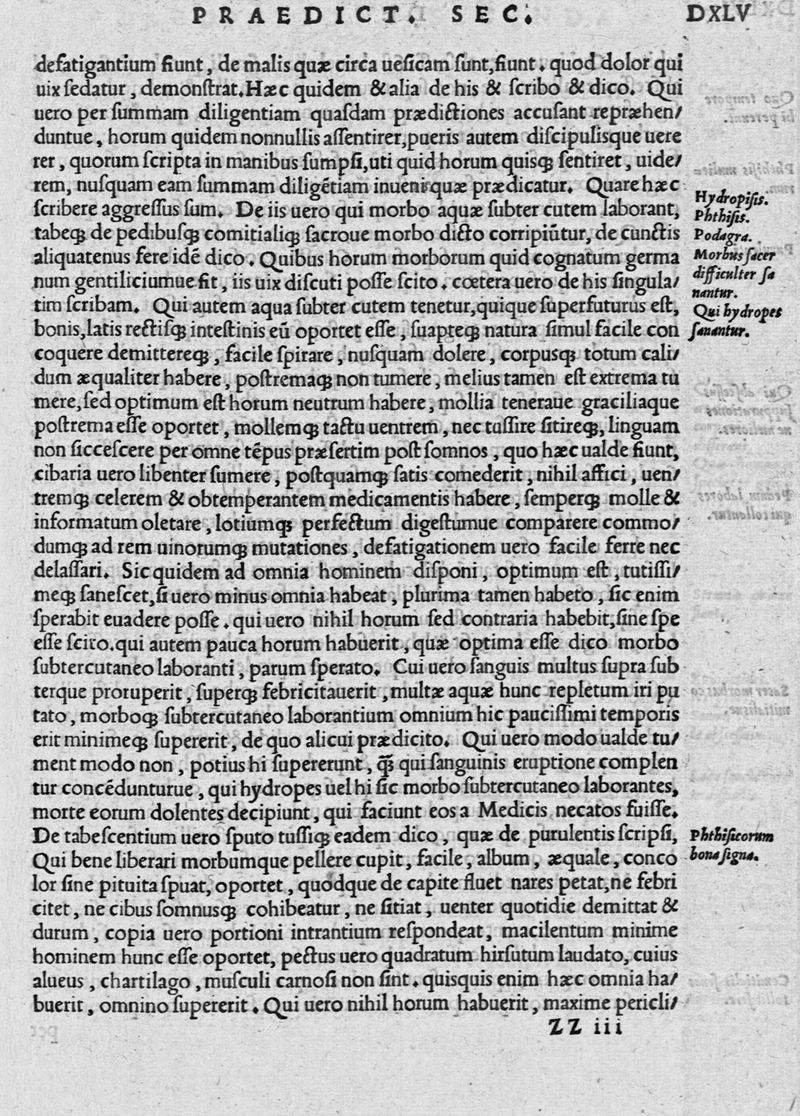 PRAEDICT. SEC. DXLV
defatigantium fiunt, de malis quæ circa ueſicam ſunt, fiunt. quod dolor qui
uix ſedatur, demonſtrat. Hæc quidem & alia de his & ſcribo & dico. Qui
uero per ſummam diligentiam quaſdam prædictiones accuſant repræhen/
duntue, horum quidem nonnullis aſſentirer, pueris autem diſcipulisque uere
rer, quorum ſcripta in manibus ſumpſi, uti quid horum quisq; ſentiret, uide/
rem, nuſquam eam ſummam diligẽtiam inueni quæ prædicatur. Quare hæc
ſcribere aggreſſus ſum. De iis uero qui morbo aquæ ſubter cutem laborant,
tabeq; de pedibuſq; comitialiq; ſacroue morbo dicto corripiũtur, de cunctis
aliquatenus fere idẽ dico. Quibus horum morborum quid cognatum germa
num gentiliciumue fit, iis uix diſcuti poſſe ſcito. cœtera uero de his ſingula/
tim ſcribam. Qui autem aqua ſubter cutem tenetur, quique ſuperfuturus eſt,
bonis, latis rectiſq; inteſtinis eũ oportet eſſe, ſuapteq; natura ſimul facile con
coquere demittereq;, facile ſpirare, nuſquam dolere, corpusq; totum cali/
dum æqualiter habere, poſtremaq; non tumere, melius tamen eſt extrema tu
mere, ſed optimum eſt horum neutrum habere, mollia teneraue graciliaque
poſtrema eſſe oportet, mollemq; tactu uentrem, nec tuſſire ſitireq;, linguam
non ſicceſcere per omne tẽpus præſertim poſt ſomnos, quo hæc ualde fiunt,
cibaria uero libenter ſumere, poſtquamq; ſatis comederit, nihil affici, uen/
tremq; celerem & obtemperantem medicamentis habere, ſemperq; molle &
informatum oletare, lotiumq; perfectum digeſtumue comparere commo/
dumq; ad rem uinorumq; mutationes, defatigationem uero facile ferre nec
delaſſari. Sic quidem ad omnia hominem diſponi, optimum eſt, tutiſſi/
meq; ſaneſcet, ſi uero minus omnia habeat, plurima tamen habeto, ſic enim
ſperabit euadere poſſe. qui uero nihil horum ſed contraria habebit, ſine ſpe
eſſe ſcito. qui autem pauca horum habuerit, quæ optima eſſe dico morbo
ſubtercutaneo laboranti, parum ſperato. Cui uero ſanguis multus ſupra ſub
terque proruperit, ſuperq; febricitauerit, multæ aquæ hunc repletum iri pu
tato, morboq; ſubtercutaneo laborantium omnium hic pauciſſimi temporis
erit minimeq; ſupererit, de quo alicui prædicito. Qui uero modo ualde tu/
ment modo non, potius hi ſupererunt, q̃ꝫ qui ſanguinis eruptione complen
tur concẽdunturue, qui hydropes uel hi ſic morbo ſubtercutaneo laborantes,
morte eorum dolentes decipiunt, qui faciunt eos a Medicis necatos fuiſſe.
De tabeſcentium uero ſputo tuſſiq; eadem dico, quæ de purulentis ſcripſi,
Qui bene liberari morbumque pellere cupit, facile, album, æquale, conco
lor ſine pituita ſpuat, oportet, quodque de capite fluet nares petat, ne febri
citet, ne cibus ſomnusq; cohibeatur, ne ſitiat, uenter quotidie demittat &
durum, copia uero portioni intrantium reſpondeat, macilentum minime
hominem hunc eſſe oportet, pectus uero quadratum hirſutum laudato, cuius
alueus, chartilago, muſculi carnoſi non ſint. quisquis enim hæc omnia ha/
buerit, omnino ſupererit. Qui uero nihil horum habuerit, maxime pericli/
ZZ iii
Hydropiſis.
Phthiſis.
Podagra.
Morbus ſacer
difficulter ſa
nantur.
Qui hydropes
ſanantur.
Phthiſicorum
bona ſigna.